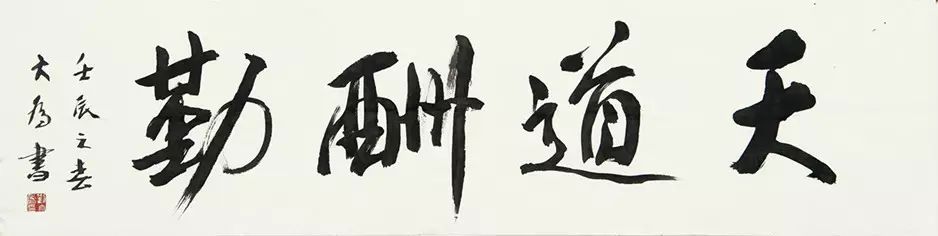 天道酬勤
壬辰之春
大為書